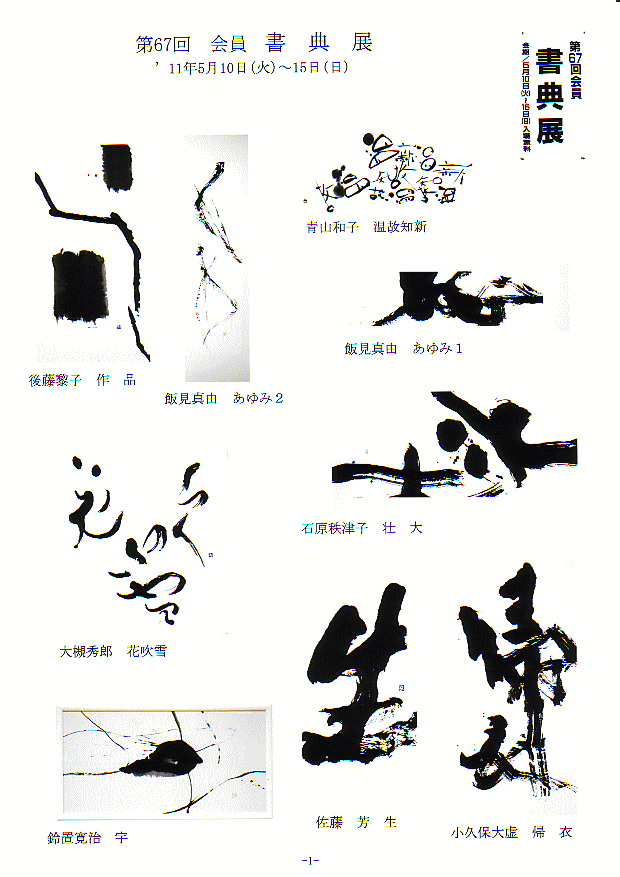 第67回　会員　書　典　展
’11年5月10日(火)～15日(日)
第67回会員
書典展
会期／5月10日(火)～15日(日)入場無料
青山和子　温故知新
飯見真由　あゆみ1
後藤黎子　作　品
飯見真由　あゆみ2
石原秩津子　壮　大
大槻秀郎　花吹雪
佐藤　芳　生
小久保大虚　帰　衣
鈴置寛治　宇
-1-